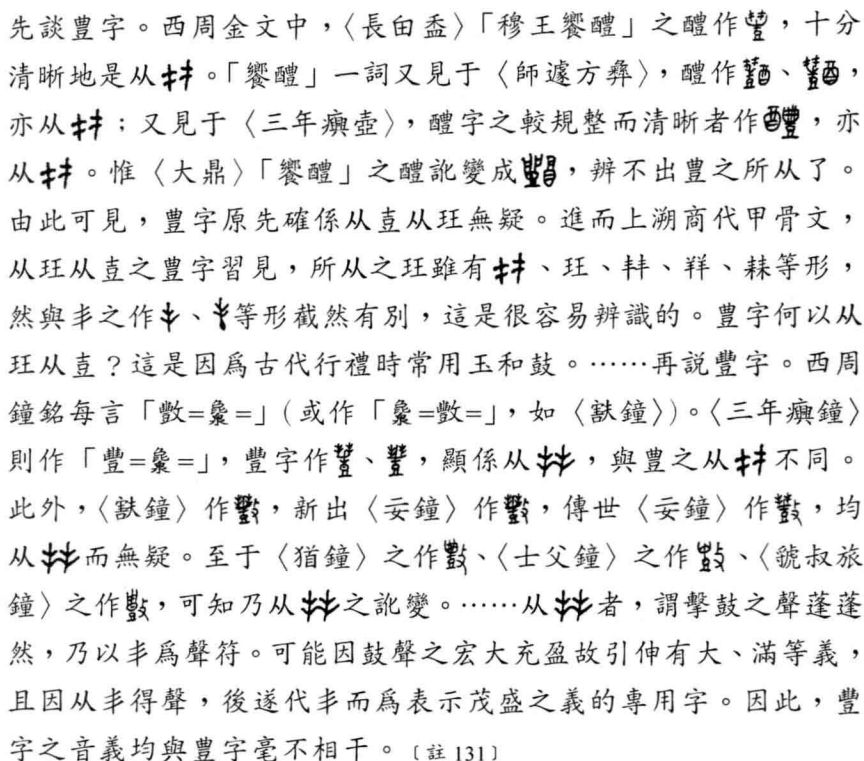 先談豊字。西周金文中，〈長甶盉〉「穆王饗醴」之醴作，十分
清晰地是从。「饗醴」一詞又見于〈師遽方彝〉，醴作、，
亦从；又見于〈三年𤼈壺〉，醴字之較規整而清晰者作，亦
从。惟〈大鼎〉「饗醴」之醴訛變成，辨不出豊之所从了。
由此可見，豊字原先確係从壴从玨無疑。進而上溯商代甲骨文，
从玨从壴之豊字習見，所从之玨雖有、玨、等形，
然與丰之作、等形截然有別，這是很容易辨識的。豊字何以从
玨从壴？這是因爲古代行禮時常用玉和鼓。……再說豐字。西周
鐘銘每言「數=㲋=」（或作「㲋=數=」，如〈㝬鐘〉）。〈三年𤼈鐘〉
則作「豐=㲋=」，豐字作、，顯係从，與豊之从不同。
此外，〈㝬鐘〉作，新出〈妄鐘〉作，傳世〈妄鐘〉作，均
从而無疑。至于〈猶鐘〉之作、〈士父鐘〉之作、〈虢叔旅
鐘〉之作，可知乃从之訛變。……从者，謂擊鼓之聲蓬蓬
然，乃以丰爲聲符。可能因鼓聲之宏大充盈故引伸有大、滿等義，
且因从丰得聲，後遂代丰而爲表示茂盛之義的專用字。因此，豐
字之音義均與豊字毫不相干。〔註131〕